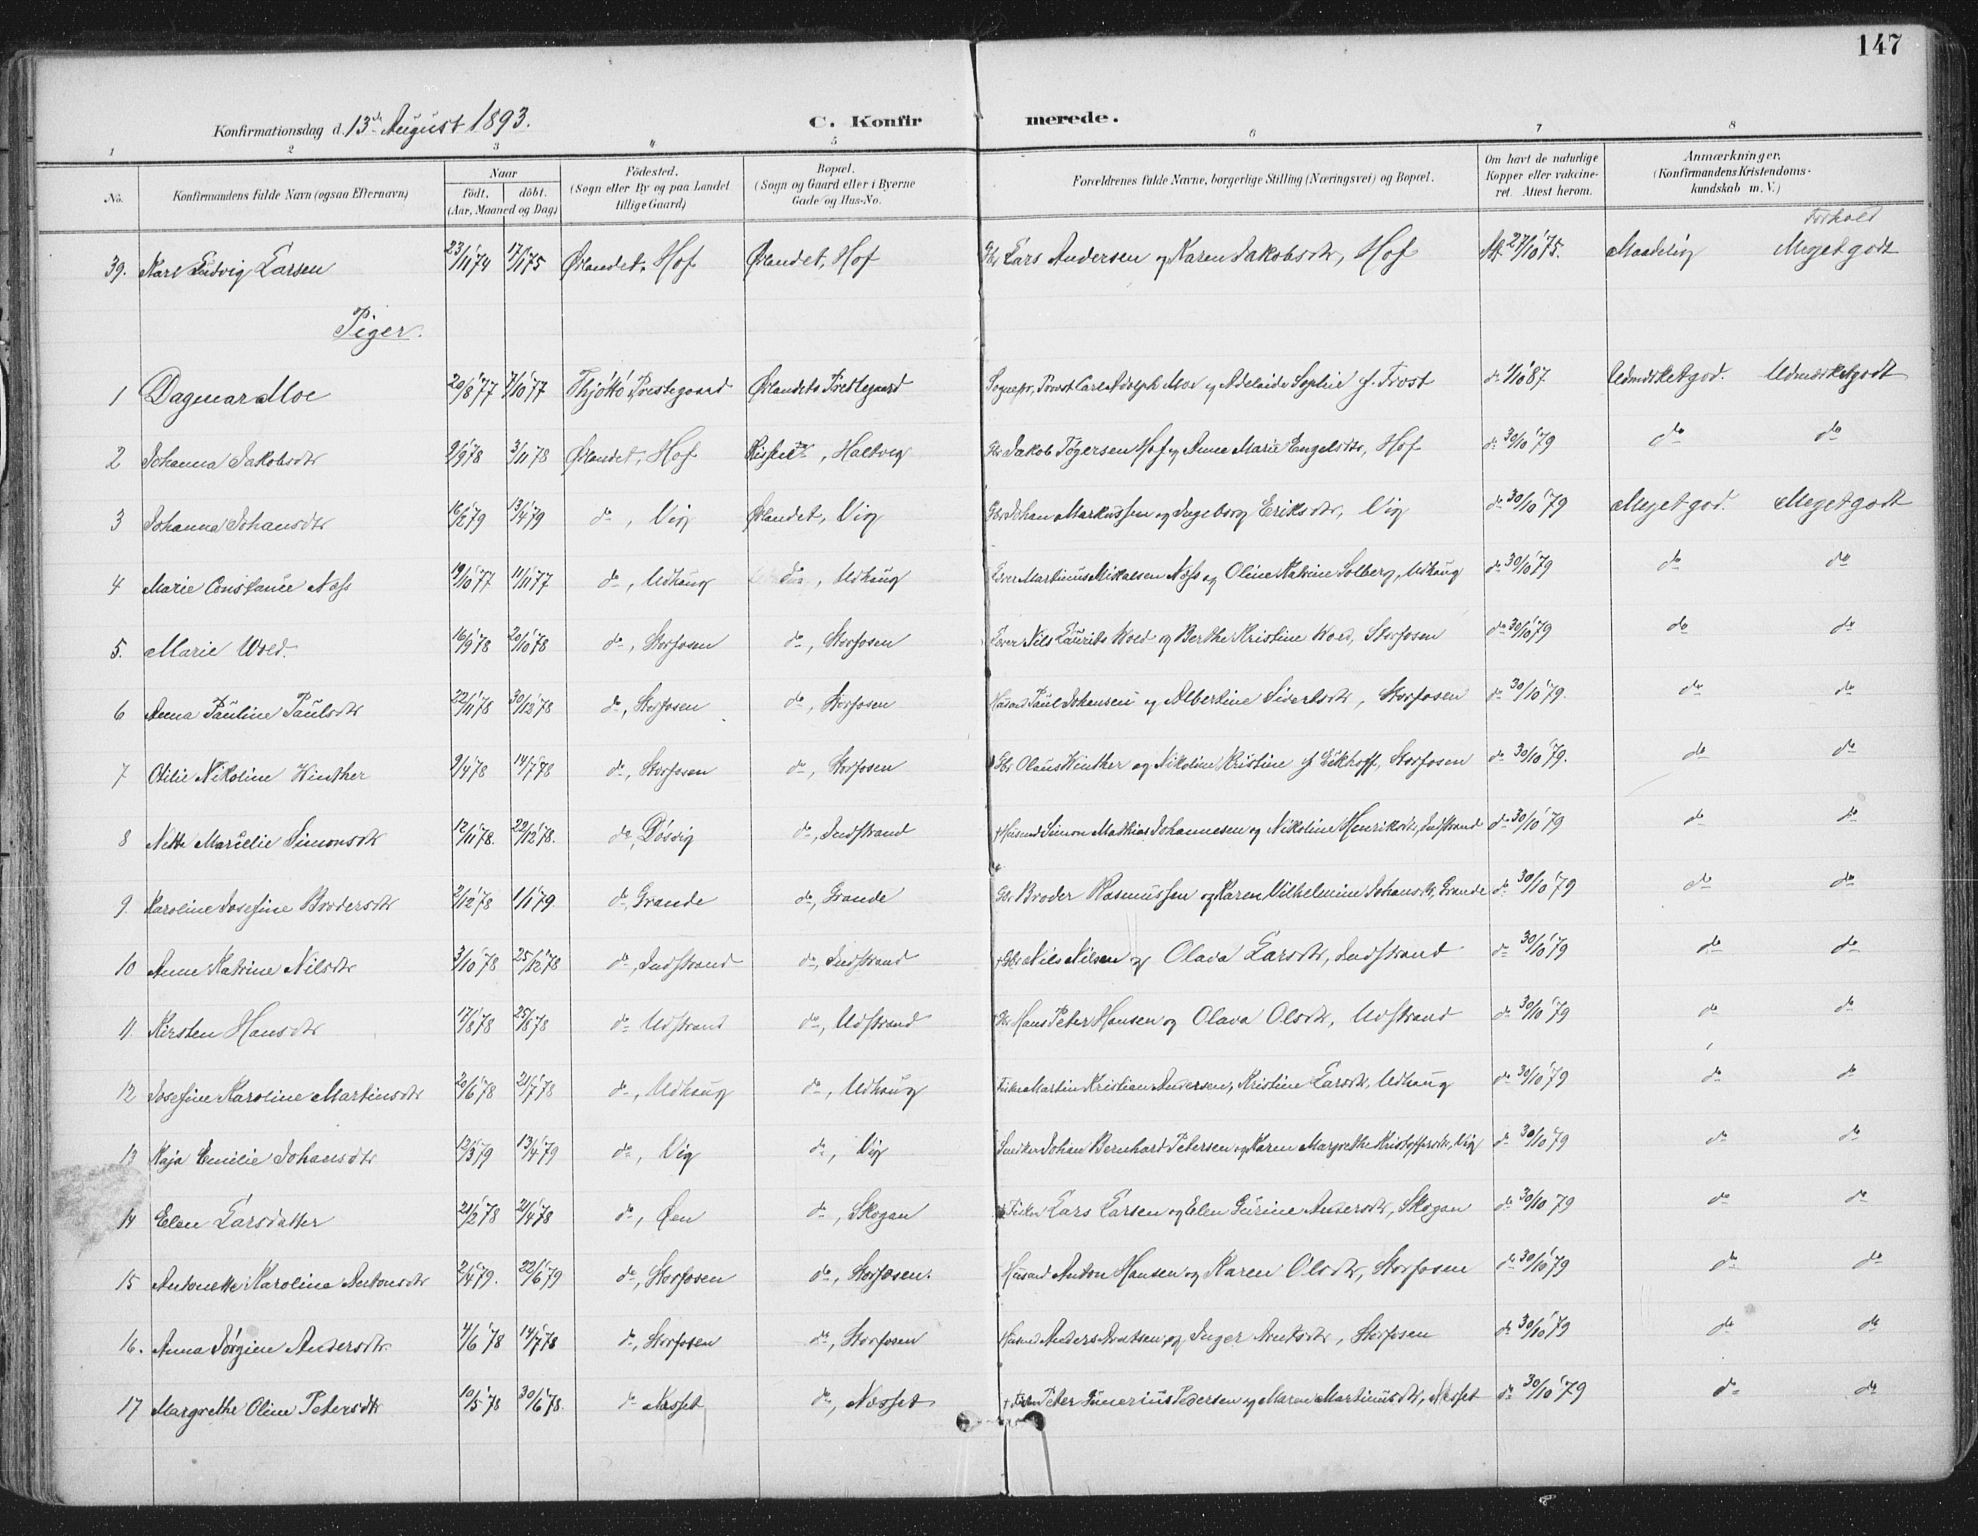 147
Konfirmationsdag d. 13de August 1893. C. Konfirmerede.
1 2 3 4 5 6 7 8
No. Konfirmandens fulde Navn (ogsaa Efternavn) Naar födt, döbt. (Aar, Maaned og Dag) Födested. (Sogn eller By og paa Landet tillige Gaard) Bopæl. (Sogn og Gaard eller i Byerne Gade og Hus-No. Forældrenes fulde Navne, borgerlige Stilling (Næringsvei) og Bopæl. Om havt de naturlige Kopper eller vaccineret. Attest herom. Anmærkninger. (Konfirmandens Kristendomskundskab m. V.) Forhold
39. Karl Ludvig Larsen 23/11 '74 17/1 '75 Ørlandet, Hof Ørlandet, Hof Gbr Lars Andersen og Karen Jakobsdtr, Hof Att 27/10 '75. Maadelig Meget godt
Piger.
1 Dagmar Moe 20/8 '77 7/10 '77 Thjöttö Prestegaard Ørlandets Prestegaard Sognepr, Provst Carl Adolph Moe og Adelaide Sophie f. Trost do 1/10 87. Udmærket god. Udmærket godt
2 Johanna Jakobsdtr 9/9 78 3/11 78 Ørlandet, Hof , Haltvig Gbr Jakob Tögersen Hof og Anne Marie Engelsdtr, Hof do 30/10 '79 do do
3 Johanna Johansdtr 16/2 79 13/4 79 do, Vig Ørlandet, Vig Gbr Johan Markussen og Ingeborg Eriksdtr, Vig do 30/10 '79 Meget god. Meget godt
4 Marie Constance Næss 19/10 77 11/11 77 do, Udhaug do, Udhaug Martinus Nikolaisen Næss og Oline Katrine Solberg, Udhaug do 30/10 79 do do
5. Marie Wold. 16/9 78 20/10 78 do, Storfosen do, Storfosen Nils Laurits Wold og Berthe Kristine Wold, Storfosen do 30/10 79 do do
6 Anna Pauline Paulsdtr 22/11 78 30/12 78 do, Storfosen do, Storfosen Husmd Paul Johansen og Albertine Sivertsdtr, Storfosen do 30/10 79. do do
7 Otilie Nikoline Winther 9/4 78 14/7 78 do, Storfosen do, Storfosen Gbr Olaus Winther og Nikoline Kristine f. Eckhoff, Storfosen do 30/10 79. do do
8 Nette Marielie Simonsdtr 12/11 78. 22/12 78. do, Dösvig do, Indstrand Husmd Simon Mathias Johannesen og Nikoline Henriksdtr, Indstrand do 30/10 79 do do
9. Karoline Josefine Brodersdtr 2/12 78 1/1 79 do, Grande do, Grande Gbr Broder Rasmussen og Karen Vilhelmine Johansdtr, Grande do 30/10 79 do do
10 Anne Katrine Nilsdtr 3/10 78 25/12 78 do, Indstrand do, Indstrand Gbr Nils Nilsen og Olava Larsdtr, Indstrand do 30/10 79 do do
11. Kirsten Hansdtr 17/8 78 25/8 78 do Udstrand do, Udstrand Gbr Hans Peter Hansen og Olava Olsdtr, Udstrand do 30/10 79 do do
12 Josefine Karoline Martinsdtr 20/6 78 21/7 78 do, Udhaug do, Udhaug Fisker Martin Kristian Andersen, Kristine Larsdtr, Udhaug do 30/10 79 do do
13 Kaja Emilie Johansdtr 12/3 79 13/4 79 do, Vig do, Vig Snedker Johan Bernhard Petersen og Karen Margrethe Kristoffersdtr, Vig do 30/10 79 do do
14 Elen Larsdatter 21/2 78 21/4 78 do, Øen do, Skogan Fisker Lars Larsen og Elen Gurine Andersdtr, Skogan do 30/10 79 do do
15 Antonette Karoline Antonsdtr 2/4 79. 22/6 79 do, Storfosen do, Storfosen. Husmd Anton Hansen og Karen Olsdtr, Storfosen do 30/10 79 do do
16. Anna Jörgine Andersdtr. 4/6 78 14/7 78 do, Storfosen do, Storfosen Husmd Anders Arntsen og Inger Arntsdtr, Storfosen do 30/10 79 do do
17 Margrethe Oline Petersdtr 10/5 78 30/6 78. do Næsset do, Næsset Peter Gunerius Pedersen og Maren Martinusdtr, Næsset do 30/10 79 do do